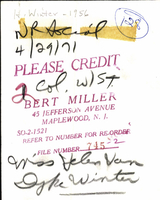 W. Winter - 1956
NR Social
4/29/71
PLEASE CREDIT
2 Col. W/St
BERT MILLER
45 JEFFERSON AVENUE
MAPLEWOOD, N. J.
SO-2-1521
REFER TO NUMBER FOR RE-ORDER
FILE NUMBER
Miss Helen Van
Dyke Winter